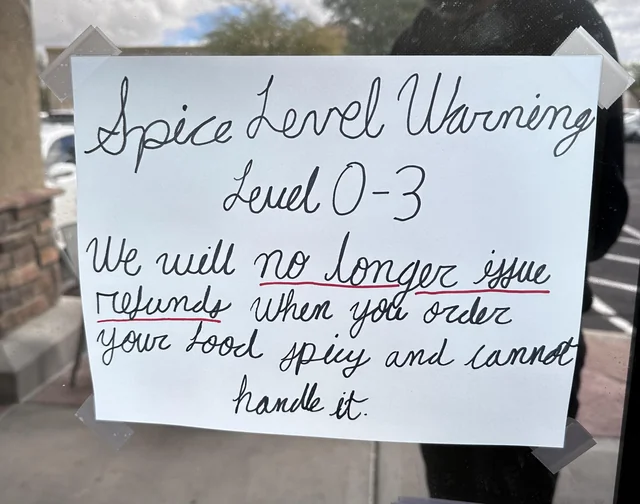 Spice Level Warning
Level 0-3
We will no longer issue
refunds when you order
your food spicy and cannot
handle it.